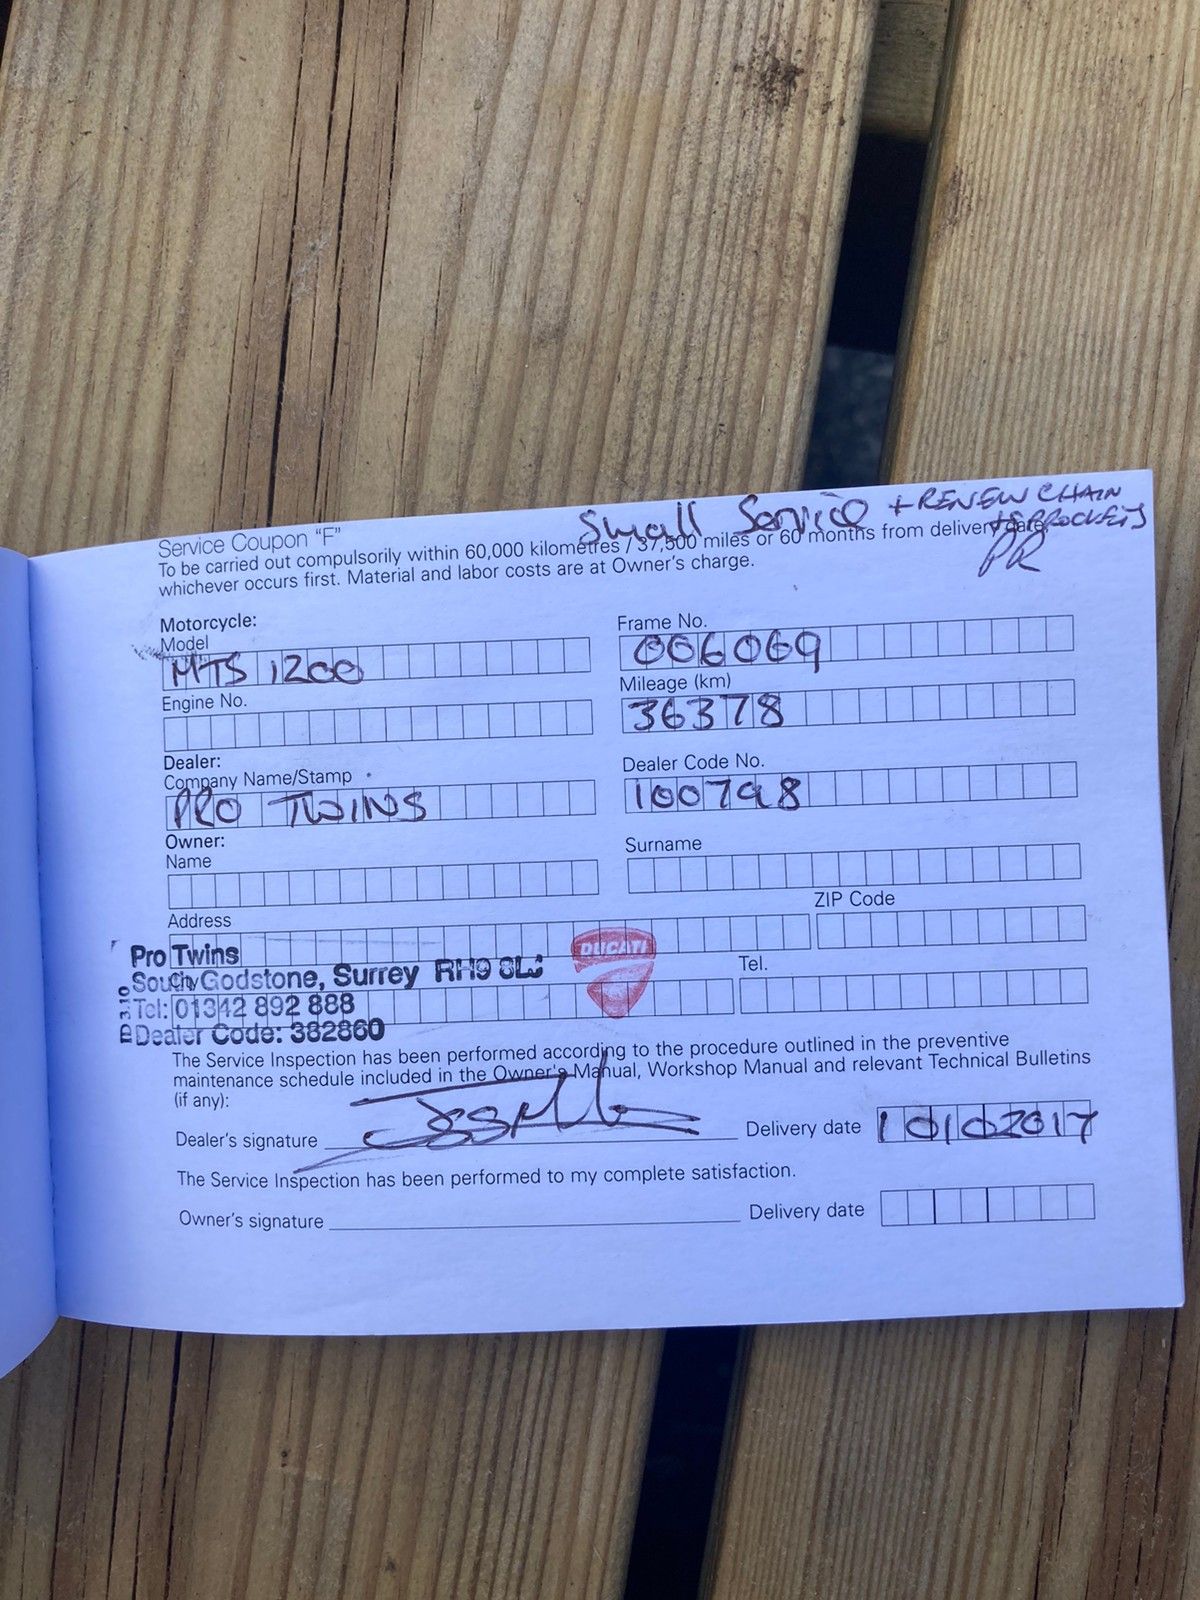 Small Service + RENEW CHAIN
+ SPROCKETS
PR
Service Coupon "F"
To be carried out compulsorily within 60,000 kilometres / 37,500 miles or 60 months from delivery date,
whichever occurs first. Material and labor costs are at Owner's charge.
Motorcycle:
Model
MTS 1200
Frame No.
006069
Engine No.
Mileage (km)
36378
Dealer:
Company Name/Stamp
PRO TWINS
Dealer Code No.
100798
Owner:
Name
Surname
Address
ZIP Code
DUCATI
Pro Twins
South Godstone, Surrey RH9 8LJ
City
Tel.
Tel: 01342 892 888
Dealer Code: 382860
The Service Inspection has been performed according to the procedure outlined in the preventive
maintenance schedule included in the Owner's Manual, Workshop Manual and relevant Technical Bulletins
(if any):
Dealer's signature
Delivery date 10102017
The Service Inspection has been performed to my complete satisfaction.
Owner's signature
Delivery date